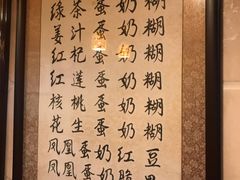 绿茶蛋奶糊
姜汁蛋奶糊
红杞蛋奶糊
红莲蛋奶糊
核桃蛋奶糊
花生蛋奶糊
凤凰蛋奶红豆
凤凰蛋奶